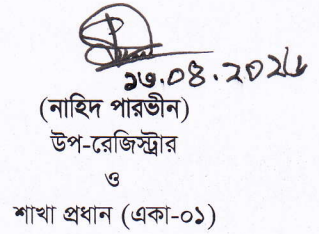 ১৬.০৪.২০২৬
(নাহিদ পারভীন)
উপ-রেজিস্ট্রার
ও
শাখা প্রধান (একা-০১)